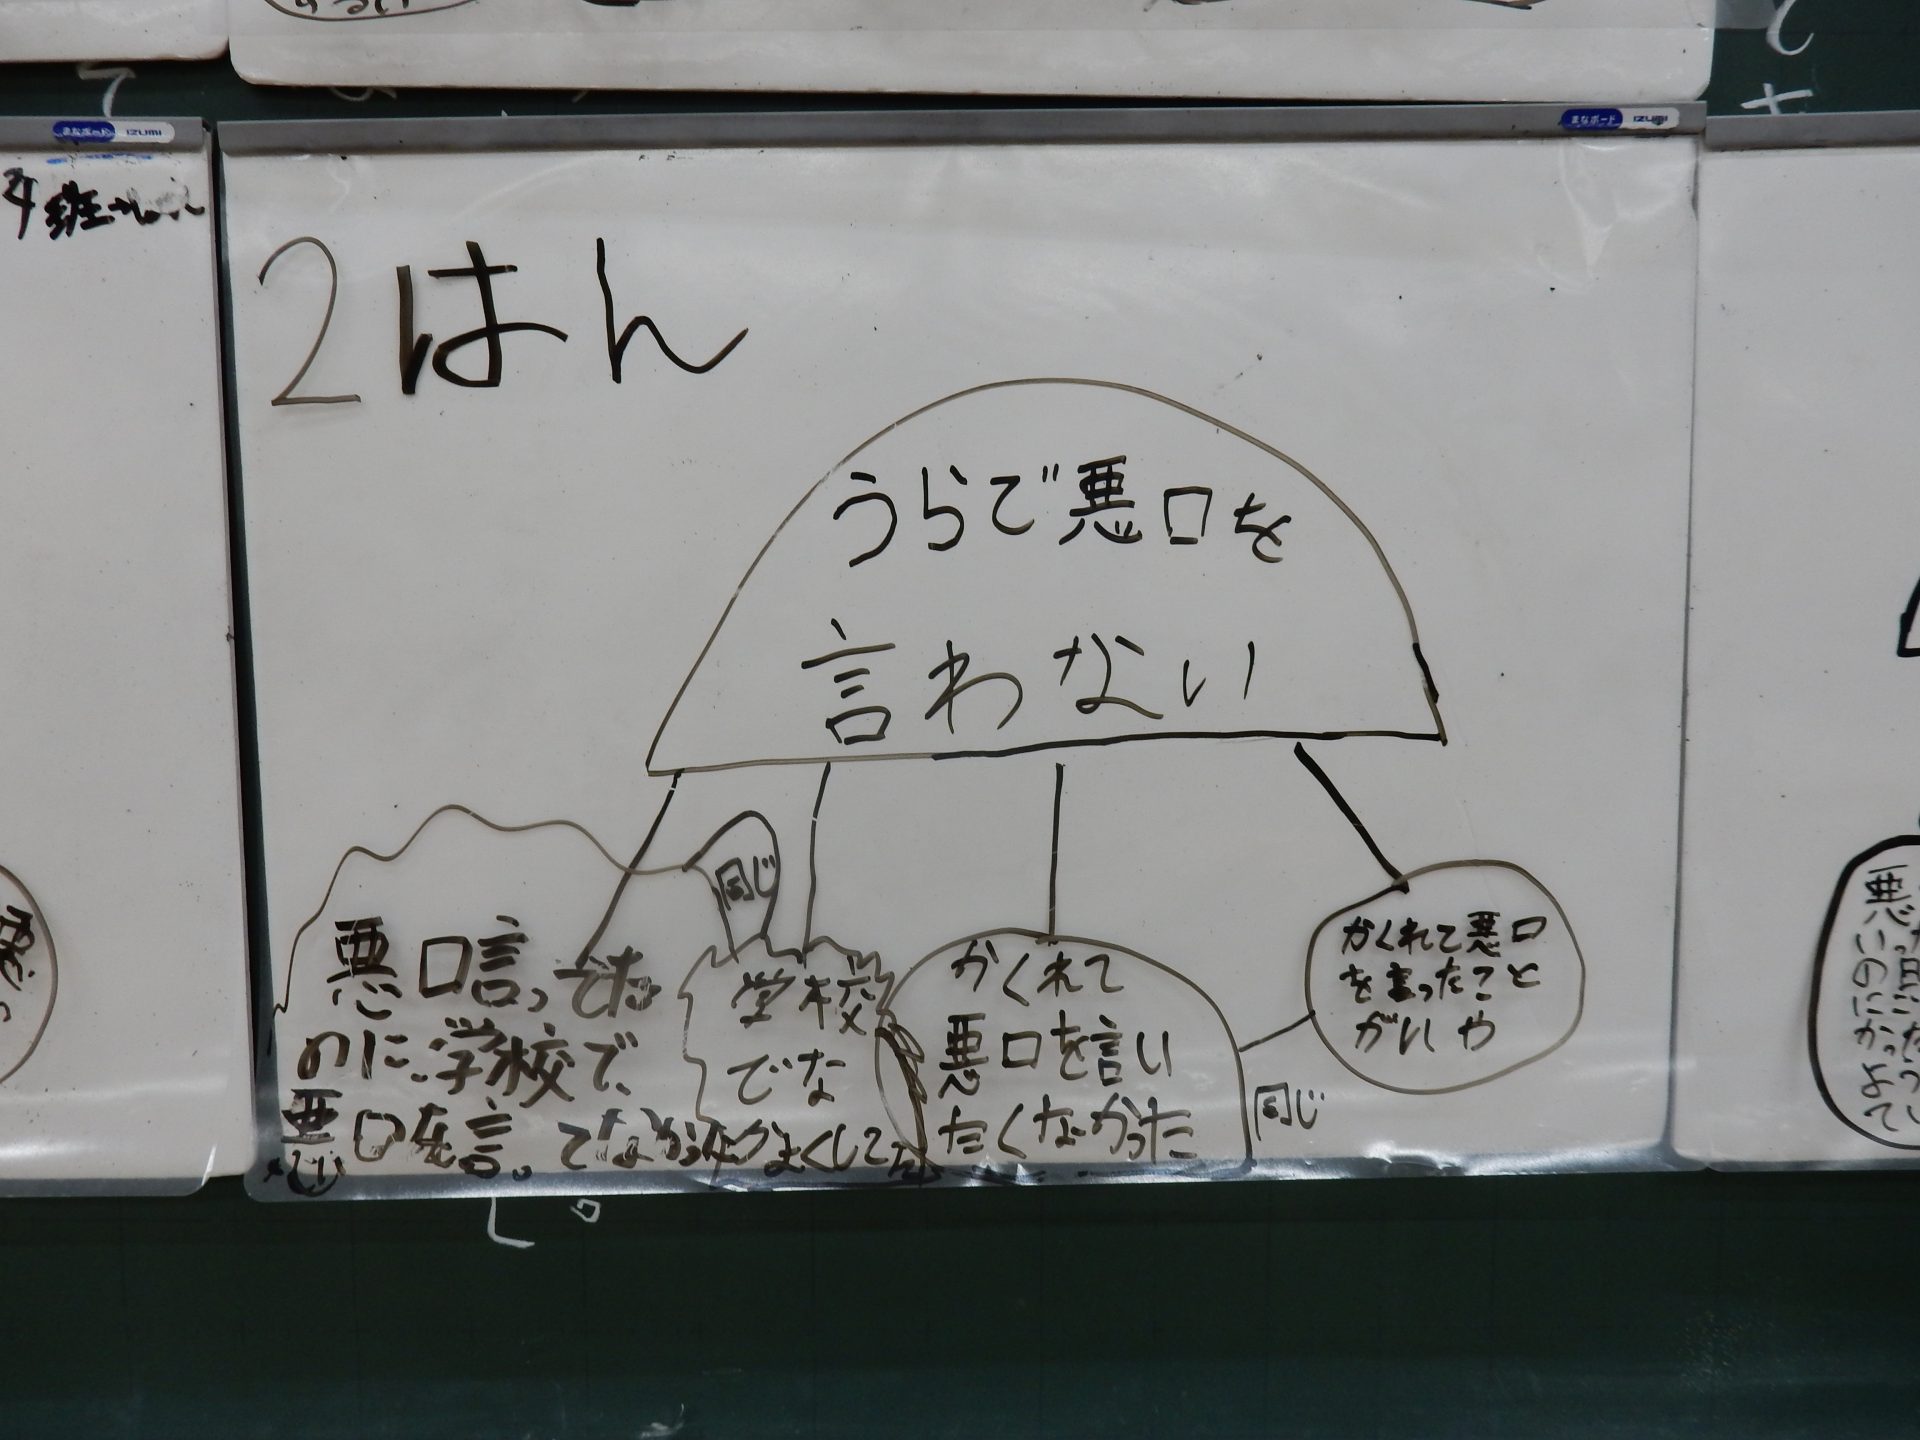 まなボード IZUMI
まなボード IZUMI
4班
2はん
うらで悪口を
言わない
同じ
悪口言ってた
のに、学校で、
悪口を言ってなかった
学校
でな
かよくしてた
かくれて
悪口を言い
たくなかった
同じ
かくれて悪口
を言ったこと
がいや